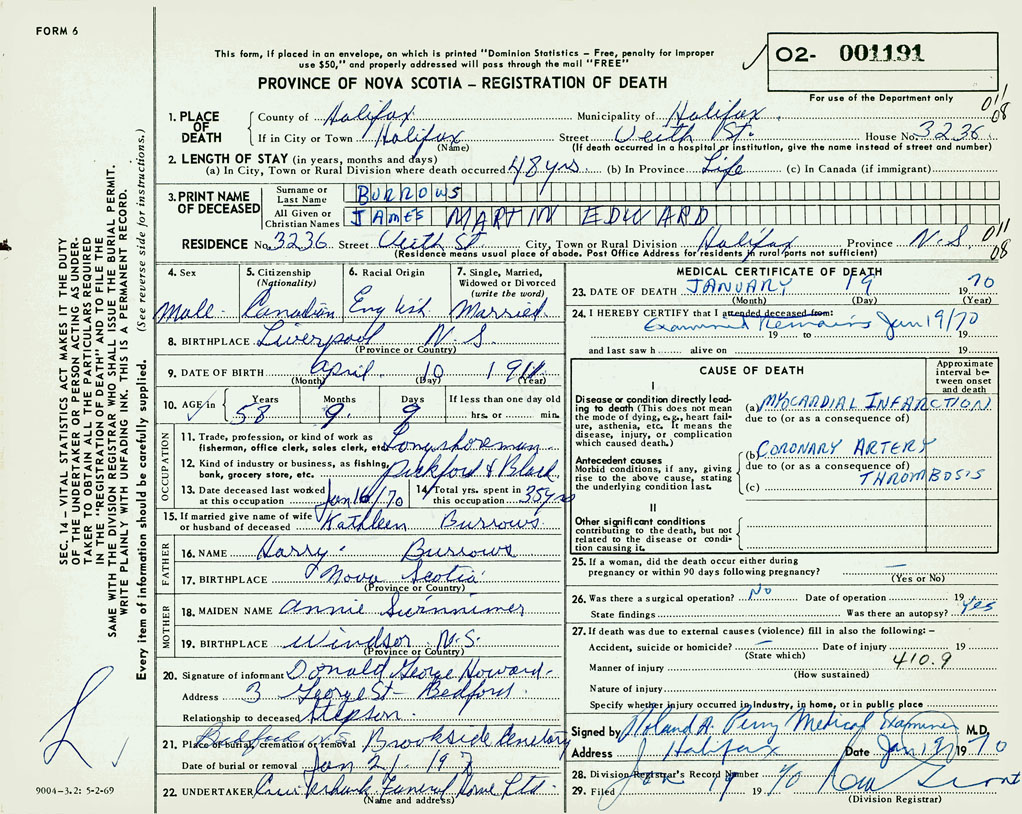 FORM 6
This form, if placed in an envelope, on which is printed "Dominion Statistics – Free, penalty for improper
use $50," and properly addressed will pass through the mail "FREE"
PROVINCE OF NOVA SCOTIA – REGISTRATION OF DEATH
O2- 001191
For use of the Department only
011
08
1. PLACE OF DEATH
County of Halifax Municipality of Halifax
If in City or Town Halifax Street Veith St. House No. 3236
(Name) (If death occurred in a hospital or institution, give the name instead of street and number)
2. LENGTH OF STAY (in years, months and days)
(a) In City, Town or Rural Division where death occurred 48 yrs (b) In Province Life (c) In Canada (if immigrant)
3. PRINT NAME OF DECEASED
Surname or Last Name BURROWS
All Given or Christian Names JAMES MARTIN EDWARD
RESIDENCE No. 3236 Street Veith St City, Town or Rural Division Halifax Province N.S.
011
08
(Residence means usual place of abode. Post Office Address for residents in rural parts not sufficient)
4. Sex
Male
5. Citizenship
(Nationality)
Canadian
6. Racial Origin
English
7. Single, Married,
Widowed or Divorced
(write the word)
Married
8. BIRTHPLACE Liverpool N.S.
(Province or Country)
9. DATE OF BIRTH April 10 1911
(Month) (Day) (Year)
10. AGE in Years Months Days If less than one day old
58 9 9 hrs. or min.
OCCUPATION
11. Trade, profession, or kind of work as
fisherman, office clerk, sales clerk, etc. Longshoreman
12. Kind of industry or business, as fishing,
bank, grocery store, etc. Pickford & Black
13. Date deceased last worked
at this occupation Jan 16/70
14. Total yrs. spent in
this occupation 35 yrs
15. If married give name of wife
or husband of deceased Kathleen Burrows
FATHER
16. NAME Harry Burrows
17. BIRTHPLACE Nova Scotia
(Province or Country)
MOTHER
18. MAIDEN NAME Annie
19. BIRTHPLACE Windsor N.S.
(Province or Country)
20. Signature of informant Donald George Howard
Address 3 George St - Bedford
Relationship to deceased Stepson
21. Place of burial, cremation or removal Bedford N.S. Brookside Cemetery
Date of burial or removal Jan 21 197
22. UNDERTAKER Cruikshank Funeral Home Ltd.
(Name and address)
MEDICAL CERTIFICATE OF DEATH
23. DATE OF DEATH JANUARY 19 1970
(Month) (Day) (Year)
24. I HEREBY CERTIFY that I attended deceased from:
Examined Remains Jan 19/70
19 to 19
and last saw h alive on 19
CAUSE OF DEATH
Approximate interval between onset and death
I
Disease or condition directly leading to death (This does not mean the mode of dying, e.g., heart failure, asthenia, etc. It means the disease, injury, or complication which caused death.)
(a) MYOCARDIAL INFARCTION
due to (or as a consequence of)
Antecedent causes
Morbid conditions, if any, giving rise to the above cause, stating the underlying condition last.
(b) CORONARY ARTERY
due to (or as a consequence of)
(c) THROMBOSIS
II
Other significant conditions
contributing to the death, but not related to the disease or condition causing it.
25. If a woman, did the death occur either during
pregnancy or within 90 days following pregnancy? —
(Yes or No)
26. Was there a surgical operation? No Date of operation 19
State findings Was there an autopsy? Yes
27. If death was due to external causes (violence) fill in also the following: –
Accident, suicide or homicide? — Date of injury 19
(State which)
410.9
Manner of injury
(How sustained)
Nature of injury
Specify whether injury occurred in industry, in home, or in public place
Signed by Roland A. Perry Medical Examiner M.D.
Address Halifax Date Jan 19/ 1970
28. Division Registrar's Record Number
29. Filed Jan 19 1970
(Division Registrar)
SEC. 14 – VITAL STATISTICS ACT MAKES IT THE DUTY
OF THE UNDERTAKER OR PERSON ACTING AS UNDER-
TAKER TO OBTAIN ALL THE PARTICULARS REQUIRED
IN THE "REGISTRATION OF DEATH" AND TO FILE THE
SAME WITH THE DIVISION REGISTRAR WHO SHALL ISSUE THE BURIAL PERMIT.
WRITE PLAINLY WITH UNFADING INK. THIS IS A PERMANENT RECORD.
Every item of information should be carefully supplied. (See reverse side for instructions.)
9004-3.2: 5-2-69